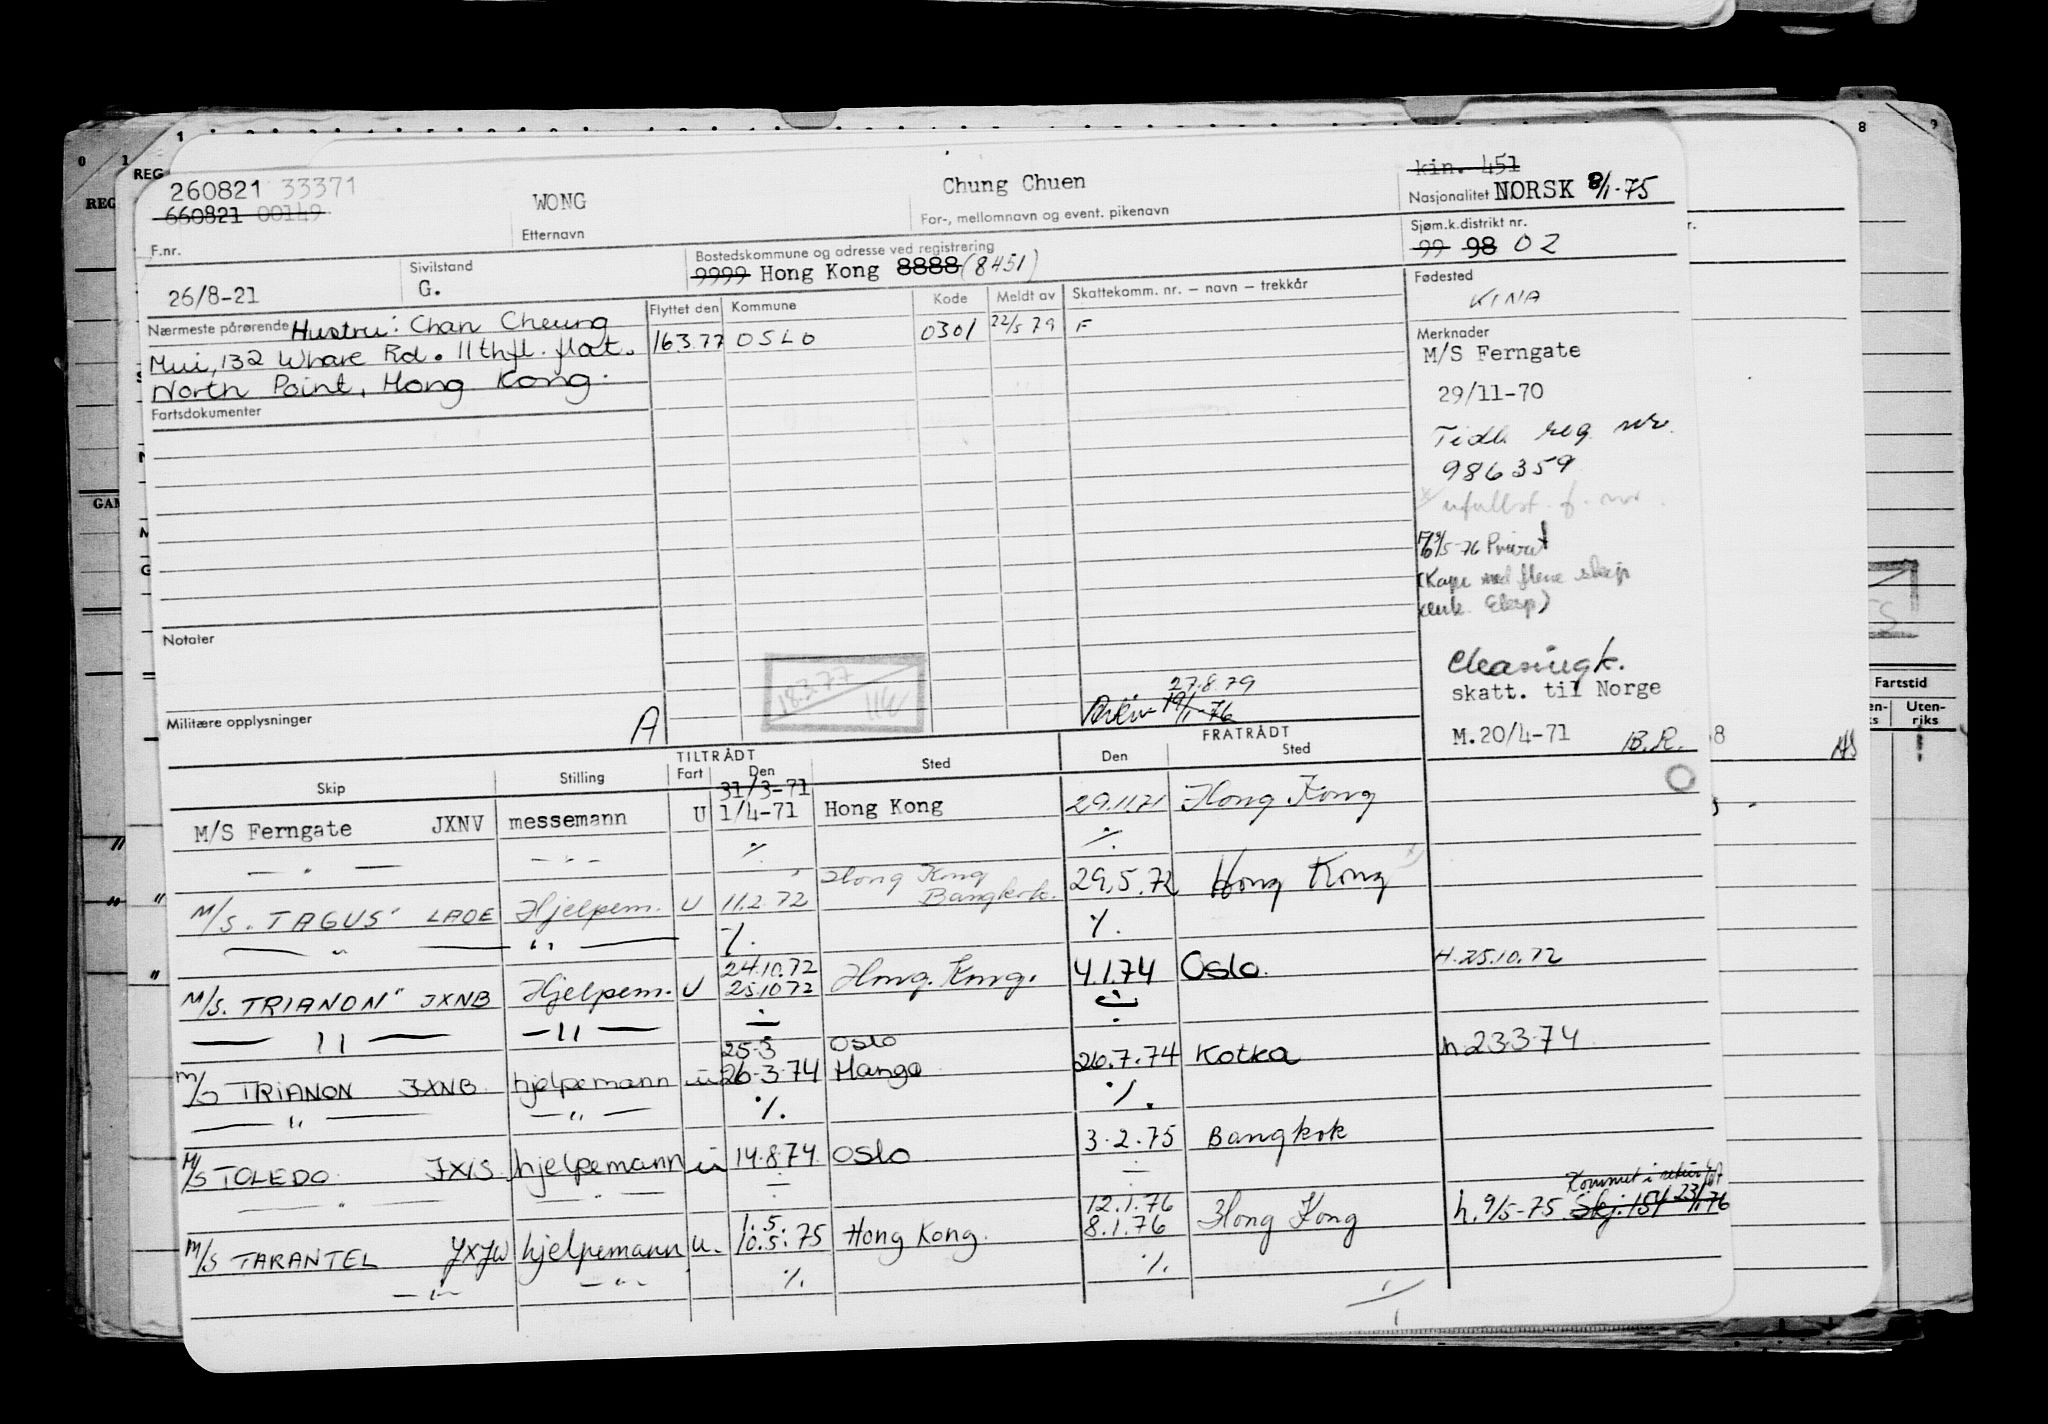 260821 33371
660821 00149
F.nr.
WONG
Etternavn
Chung Chuen
For-, mellomnavn og event. pikenavn
kin. 451
Nasjonalitet NORSK 8/1-75
Sjøm.k.distrikt nr.
99 98 02
26/8-21
Sivilstand
G.
Bostedskommune og adresse ved registrering
9999 Hong Kong 8888 (8451)
Fødested
KINA
Nærmeste pårørende Hustru: Chan Cheung
Mui, 132 Whare Rd. 11thfl. flat.
North Point, Hong Kong.
Flyttet den Kommune Kode Meldt av Skattekomm. nr. — navn — trekkår
16.3.77 OSLO 0301 22/5 79 F
Fartsdokumenter
Merknader
M/S Ferngate
29/11-70
Tidl reg nr.
986359
ufullst. f. nr.
Cleasingk.
skatt. til Norge
M.20/4-71 B.R.
Notater
Militære opplysninger
A
18.3.77
27.8.79
Arkiv 19/1-76
TILTRÅDT FRATRÅDT
Skip Stilling Fart Den Sted Den Sted
31/3-71
M/S Ferngate JXNV messemann U 1/4-71 Hong Kong 29.11.71 Hong Kong
— " — — " — ٪. ٪.
Hong Kong
M/S. "TAGUS" LAOE Hjelpem. U 11.2.72 Bangkok. 29.5.72 Hong Kong
— " — — " — ٪. ٪.
24.10.72
M/S. TRIANON" JXNB Hjelpem. U 25.10.72 Hong. Kong. 4.1.74 Oslo. H. 25.10.72
— " — — " — ÷ ÷
25.3 Oslo
M/S TRIANON JXNB. hjelpemann u 26.3.74 Hangø 26.7.74 Kotka h. 23.3.74
— " — — " — ٪. ٪.
M/S TOLEDO JXIS. hjelpemann u 14.8.74. Oslo 3.2.75 Bangkok
— " — — " — ÷ ÷
1.5. 12.1.76
M/S TARANTEL JXJW hjelpemann u. 10.5.75 Hong Kong. 8.1.76 Hong Kong h. 9/5-75 Skj. 154 23/1.76
— " — — " — ٪. ٪.
Fartstid
Uten-
riks
REG
REG
GAM